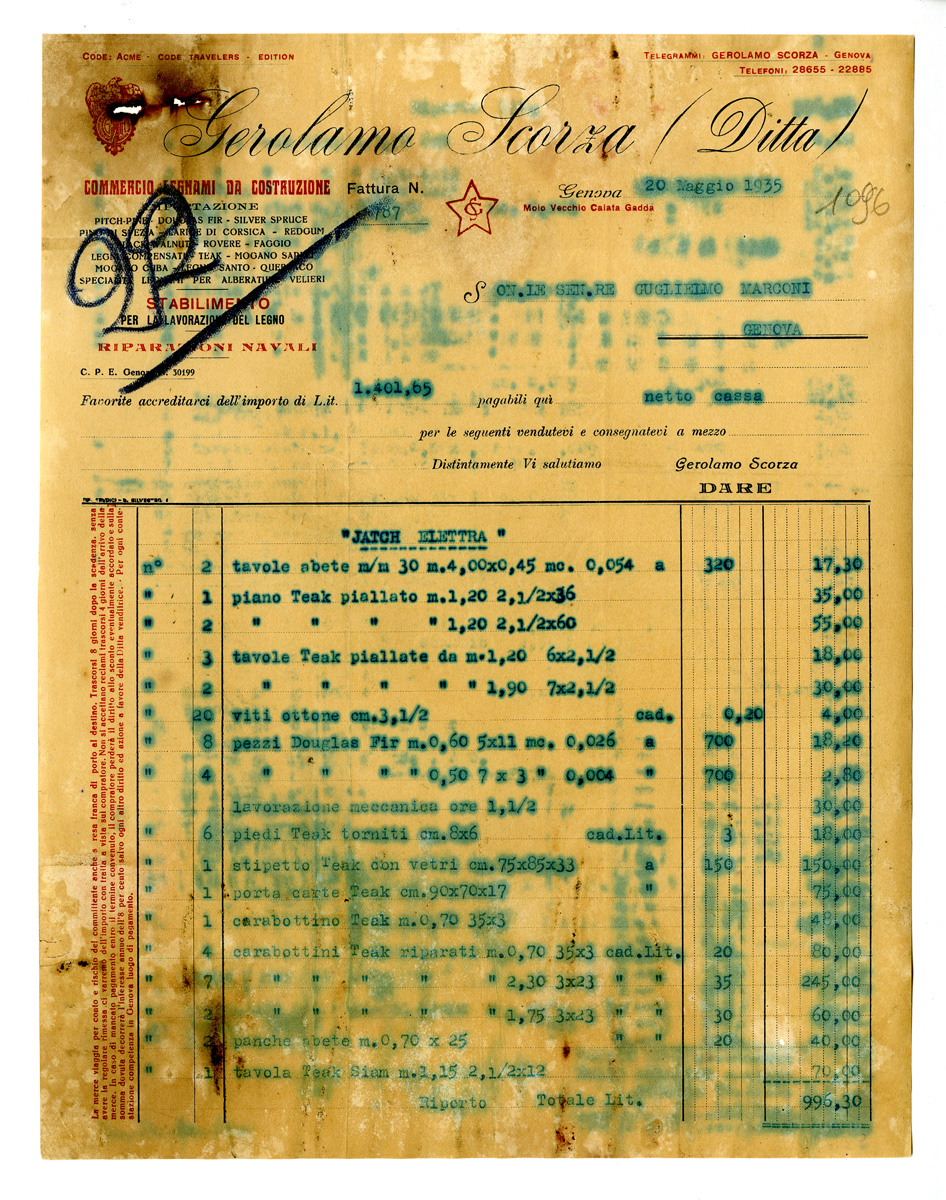 CODE: ACME - CODE TRAVELERS - EDITION
TELEGRAMMI: GEROLAMO SCORZA - GENOVA
TELEFONI: 28655 - 22885
Gerolamo Scorza (Ditta)
COMMERCIO LEGNAMI DA COSTRUZIONE
IMPORTAZIONE
PITCH-PINE - DOUGLAS FIR - SILVER SPRUCE
PINO DI SVEZIA - LARICE DI CORSICA - REDGUM
BLACK WALNUT - ROVERE - FAGGIO
LEGNI COMPENSATI - TEAK - MOGANO
MOGANO CUBA - LEGNO SANTO -
SPECIALITÀ LEGNAMI PER ALBERATURE VELIERI
STABILIMENTO
PER LA LAVORAZIONE DEL LEGNO
RIPARAZIONI NAVALI
C. P. E. Genova N. 30199
Fattura N.
787
GS
Genova 20 Maggio 1935
Molo Vecchio Calata Gadda
1096
S ON.LE SEN.RE GUGLIELMO MARCONI
GENOVA
Favorite accreditarci dell'importo di L.it. 1.401,65 pagabili quì netto cassa
per le seguenti vendutevi e consegnatevi a mezzo
Distintamente Vi salutiamo Gerolamo Scorza
DARE
"JATCH ELETTRA "
n° 2 tavole abete m/m 30 m.4,00x0,45 mc. 0,054 a 320 17,30
" 1 piano Teak piallato m.1,20 2,1/2x36 35,00
" 2 " " " " 1,20 2,1/2x60 55,00
" 3 tavole Teak piallate da m.1,20 6x2,1/2 18,00
" 2 " " " " " 1,90 7x2,1/2 30,00
" 20 viti ottone cm.3,1/2 cad. 0,20 4,00
" 8 pezzi Douglas Fir m.0,60 5x11 mc. 0,026 a 700 18,20
" 4 " " " " 0,50 7 x 3 " 0,004 " 700 2,80
lavorazione meccanica ore 1,1/2 30,00
" 6 piedi Teak torniti cm.8x6 cad.Lit. 3 18,00
" 1 stipetto Teak con vetri cm.75x85x33 a 150 150,00
" 1 porta carte Teak cm.90x70x17 " 75,00
" 1 carabottino Teak m.0,70 35x3 48,00
" 4 carabottini Teak riparati m.0,70 35x3 cad.Lit. 20 80,00
" 7 " " " " " 2,30 3x23 " " 35 245,00
" 2 " " " " " 1,75 3x23 " " 30 60,00
" 2 panche abete m.0,70 x 25 " " 20 40,00
" 1 tavola Teak Siam m.1,15 2,1/2x12 70,00
Riporto Totale Lit. 996,30
La merce viaggia per conto e rischio del committente anche se resa franca di porto al destino. Trascorsi 8 giorni dopo la scadenza, senza
avere la regolare rimessa ci varremo dell'importo con tratta a vista sul compratore. Non si accettano reclami trascorsi 4 giorni dall'arrivo della
merce. In caso di mancato pagamento entro il termine convenuto, il compratore perderà il diritto allo sconto eventualmente accordato e sulla
somma dovuta decorrerà l'interesse annuo dell'8 per cento salvo ogni altro diritto ed azione a favore della Ditta venditrice. - Per ogni conte-
stazione competenza in Genova luogo di pagamento.